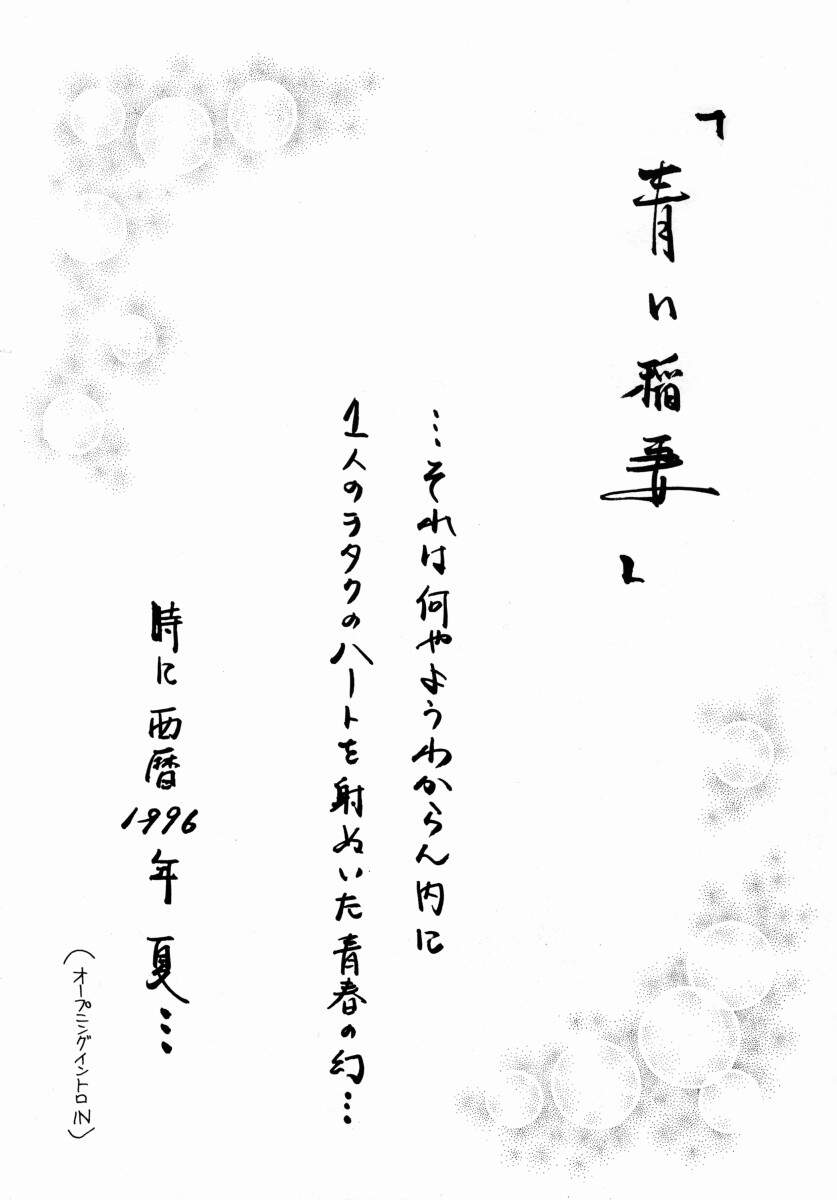 『青い稲妻』
…それは何やようわからん内に
1人のヲタクのハートを射ぬいた青春の幻…
時に西暦1996年夏…
(オープニングイントロIN)